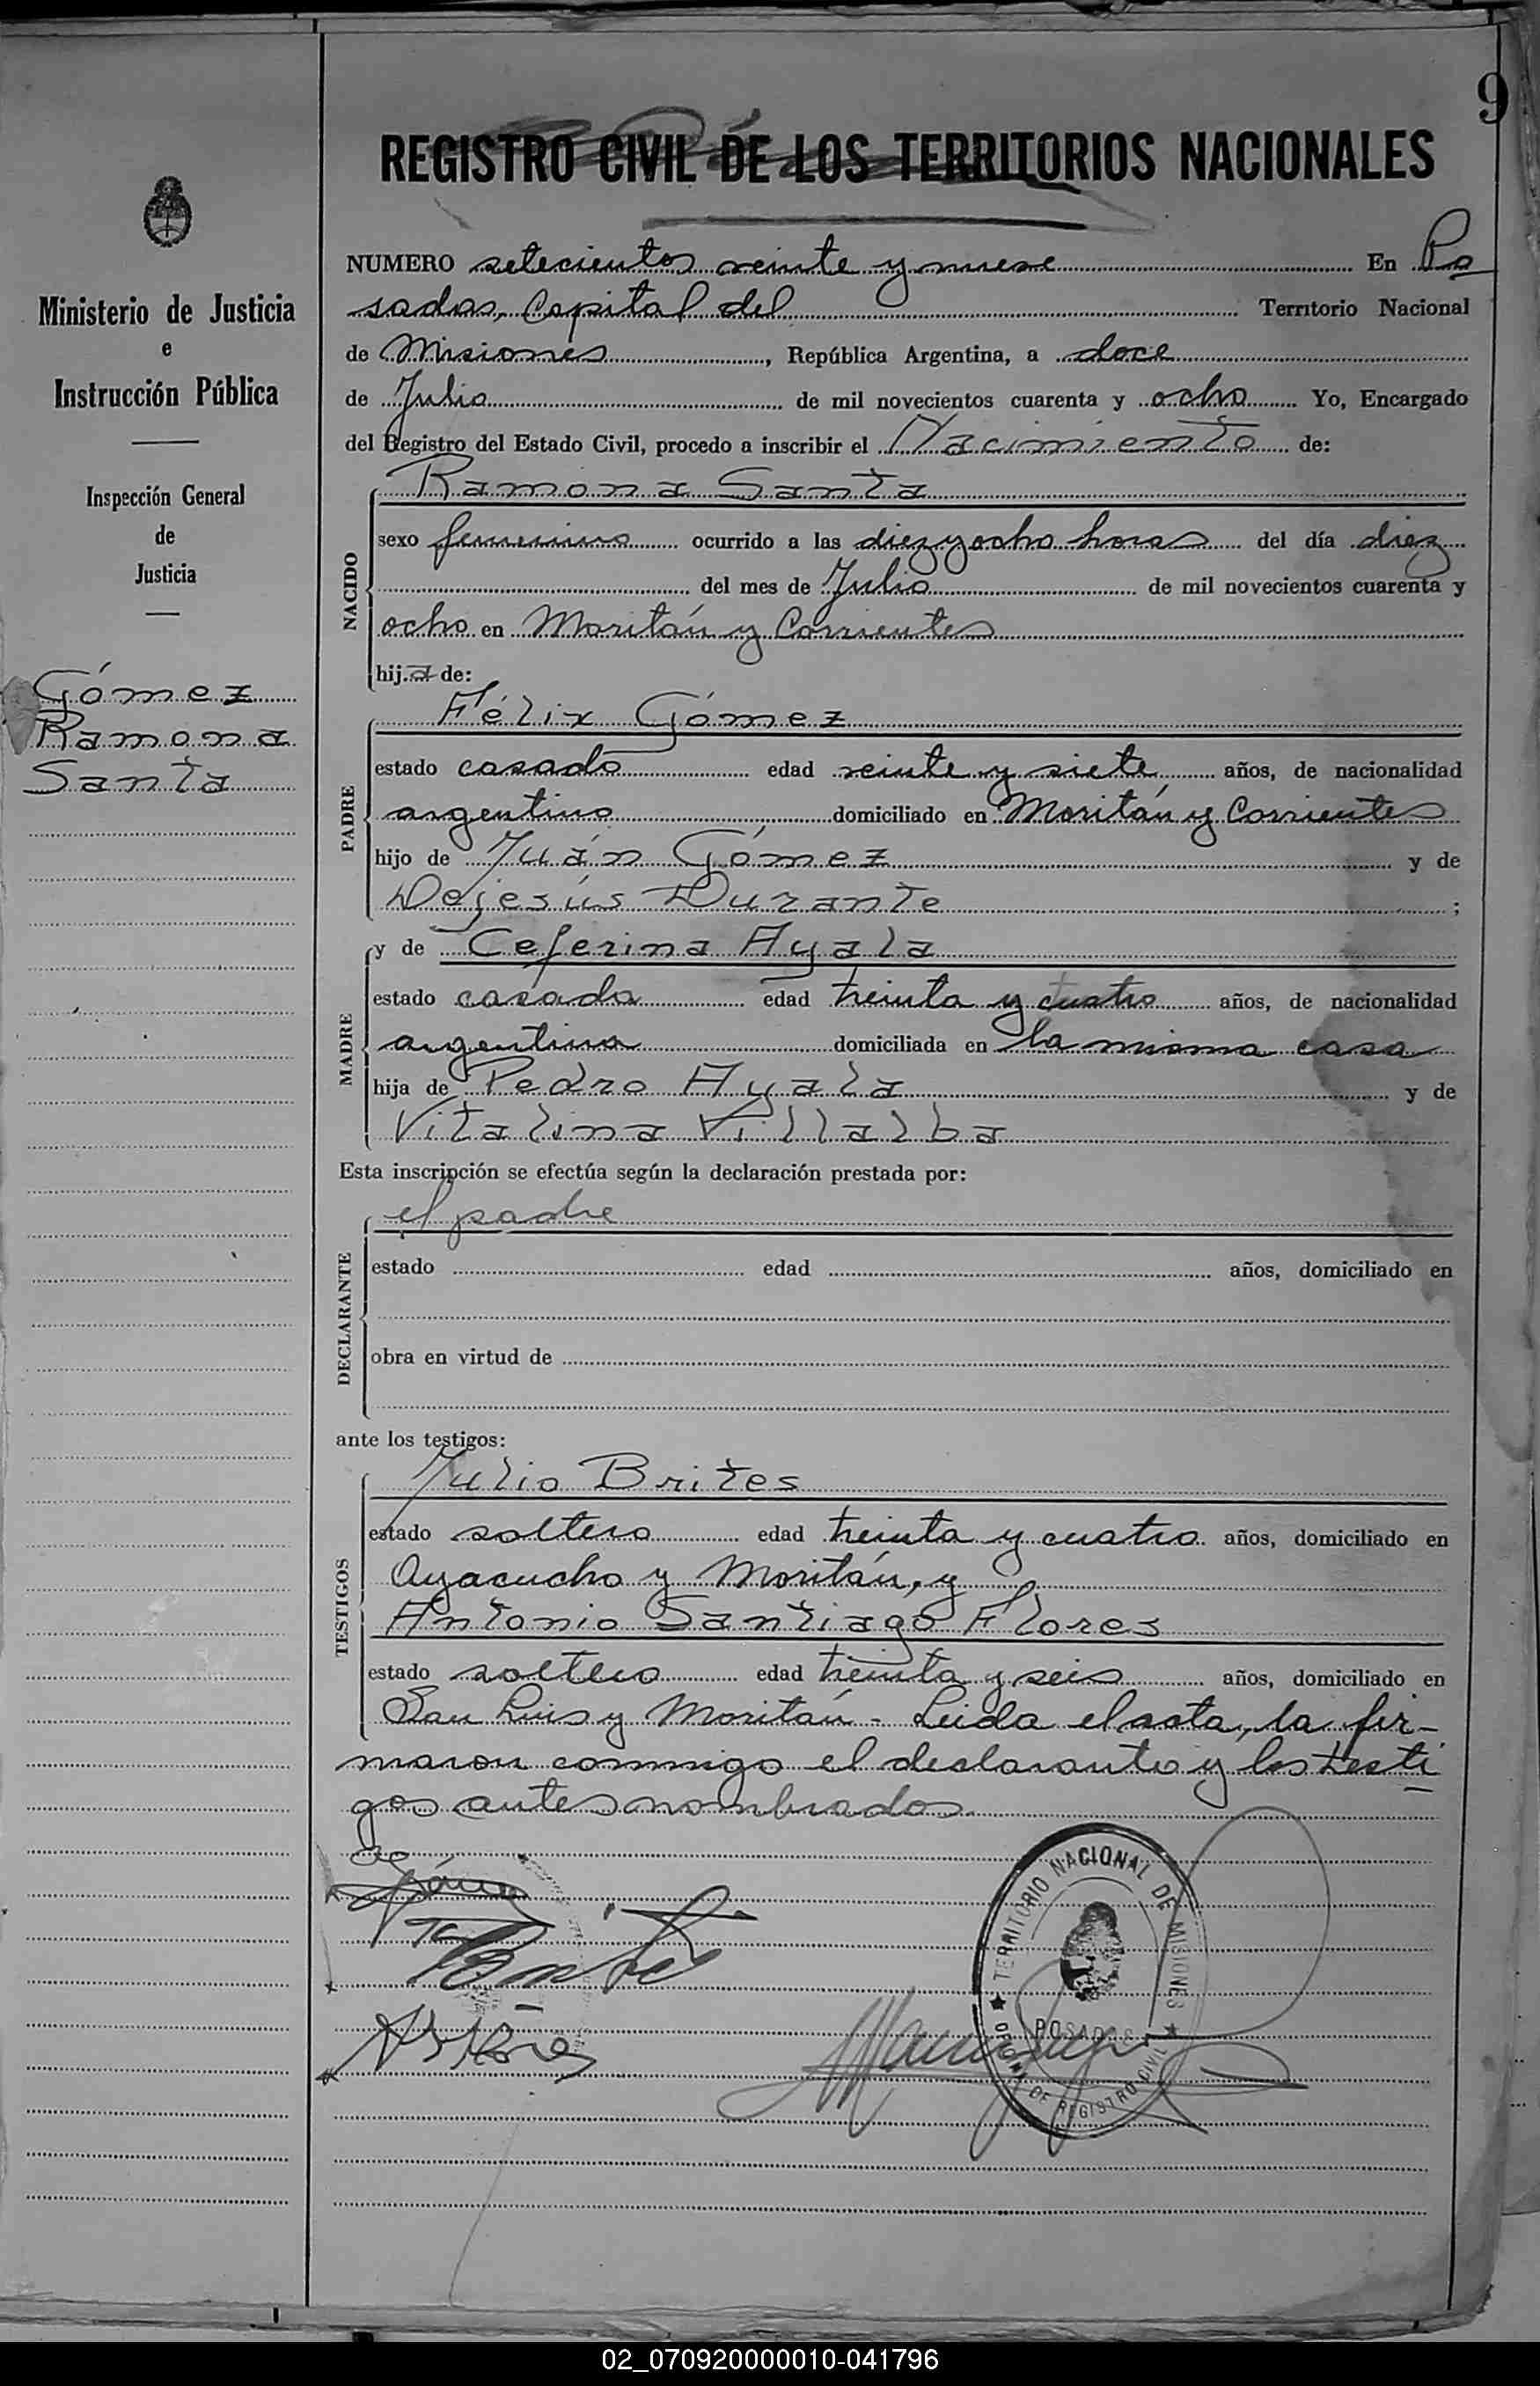 9
REGISTRO CIVIL DE LOS TERRITORIOS NACIONALES
Ministerio de Justicia
e
Instrucción Pública
Inspección General
de
Justicia
Gómez
Ramona
Santa
NUMERO setecientos veinte y nueve En Po
sadas, Capital del Territorio Nacional
de Misiones, República Argentina, a doce
de Julio de mil novecientos cuarenta y ocho Yo, Encargado
del Registro del Estado Civil, procedo a inscribir el Nacimiento de:
NACIDO
Ramona Santa
sexo femenino ocurrido a las diez y ocho horas del día diez
del mes de Julio de mil novecientos cuarenta y
ocho en Moritán y Corrientes
hija de:
PADRE
Félix Gómez
estado casado edad veinte y siete años, de nacionalidad
argentino domiciliado en Moritán y Corrientes
hijo de Juán Gómez y de
Dejesús Durante ;
MADRE
y de Ceferina Ayala
estado casada edad treinta y cuatro años, de nacionalidad
argentina domiciliada en la misma casa
hija de Pedro Ayala y de
Vitalina Villalba
Esta inscripción se efectúa según la declaración prestada por:
DECLARANTE
el padre
estado edad años, domiciliado en
obra en virtud de
ante los testigos:
TESTIGOS
Julio Brites
estado soltero edad treinta y cuatro años, domiciliado en
Ayacucho y Moritán, y
Antonio Santiago Flores
estado soltero edad treinta y seis años, domiciliado en
San Luis y Moritán - Leida el acta, la fir-
maron conmigo el declarante y los testi
gos antes nombrados.
TERRITORIO NACIONAL DE MISIONES
POSADAS
OFICINA DE REGISTRO CIVIL
02_070920000010-041796